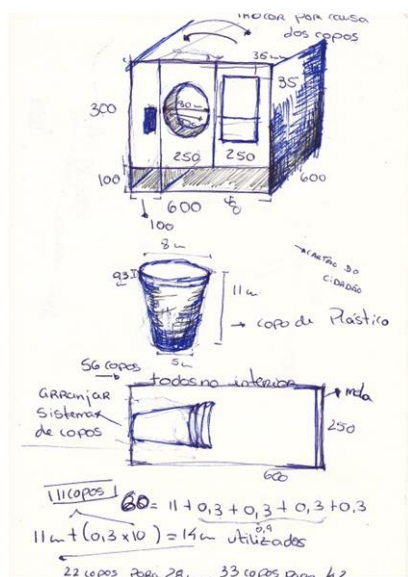 trocar por causa
dos copos
35 cm
35
300
30 cm
250 250
100
600
600
100
8 cm
0,3
11 cm
→ copo de Plástico
5 cm
→ cartão do
cidadão
56 copos
todos no interior
→ mola
arranjar
sistema
de copos
250
600
11 copos
60 = 11 + 0,3 + 0,3 + 0,3 + 0,3
0,9
11 cm + (0,3 x 10) = 14 cm utilizados
22 copos para 28, 33 copos para 42